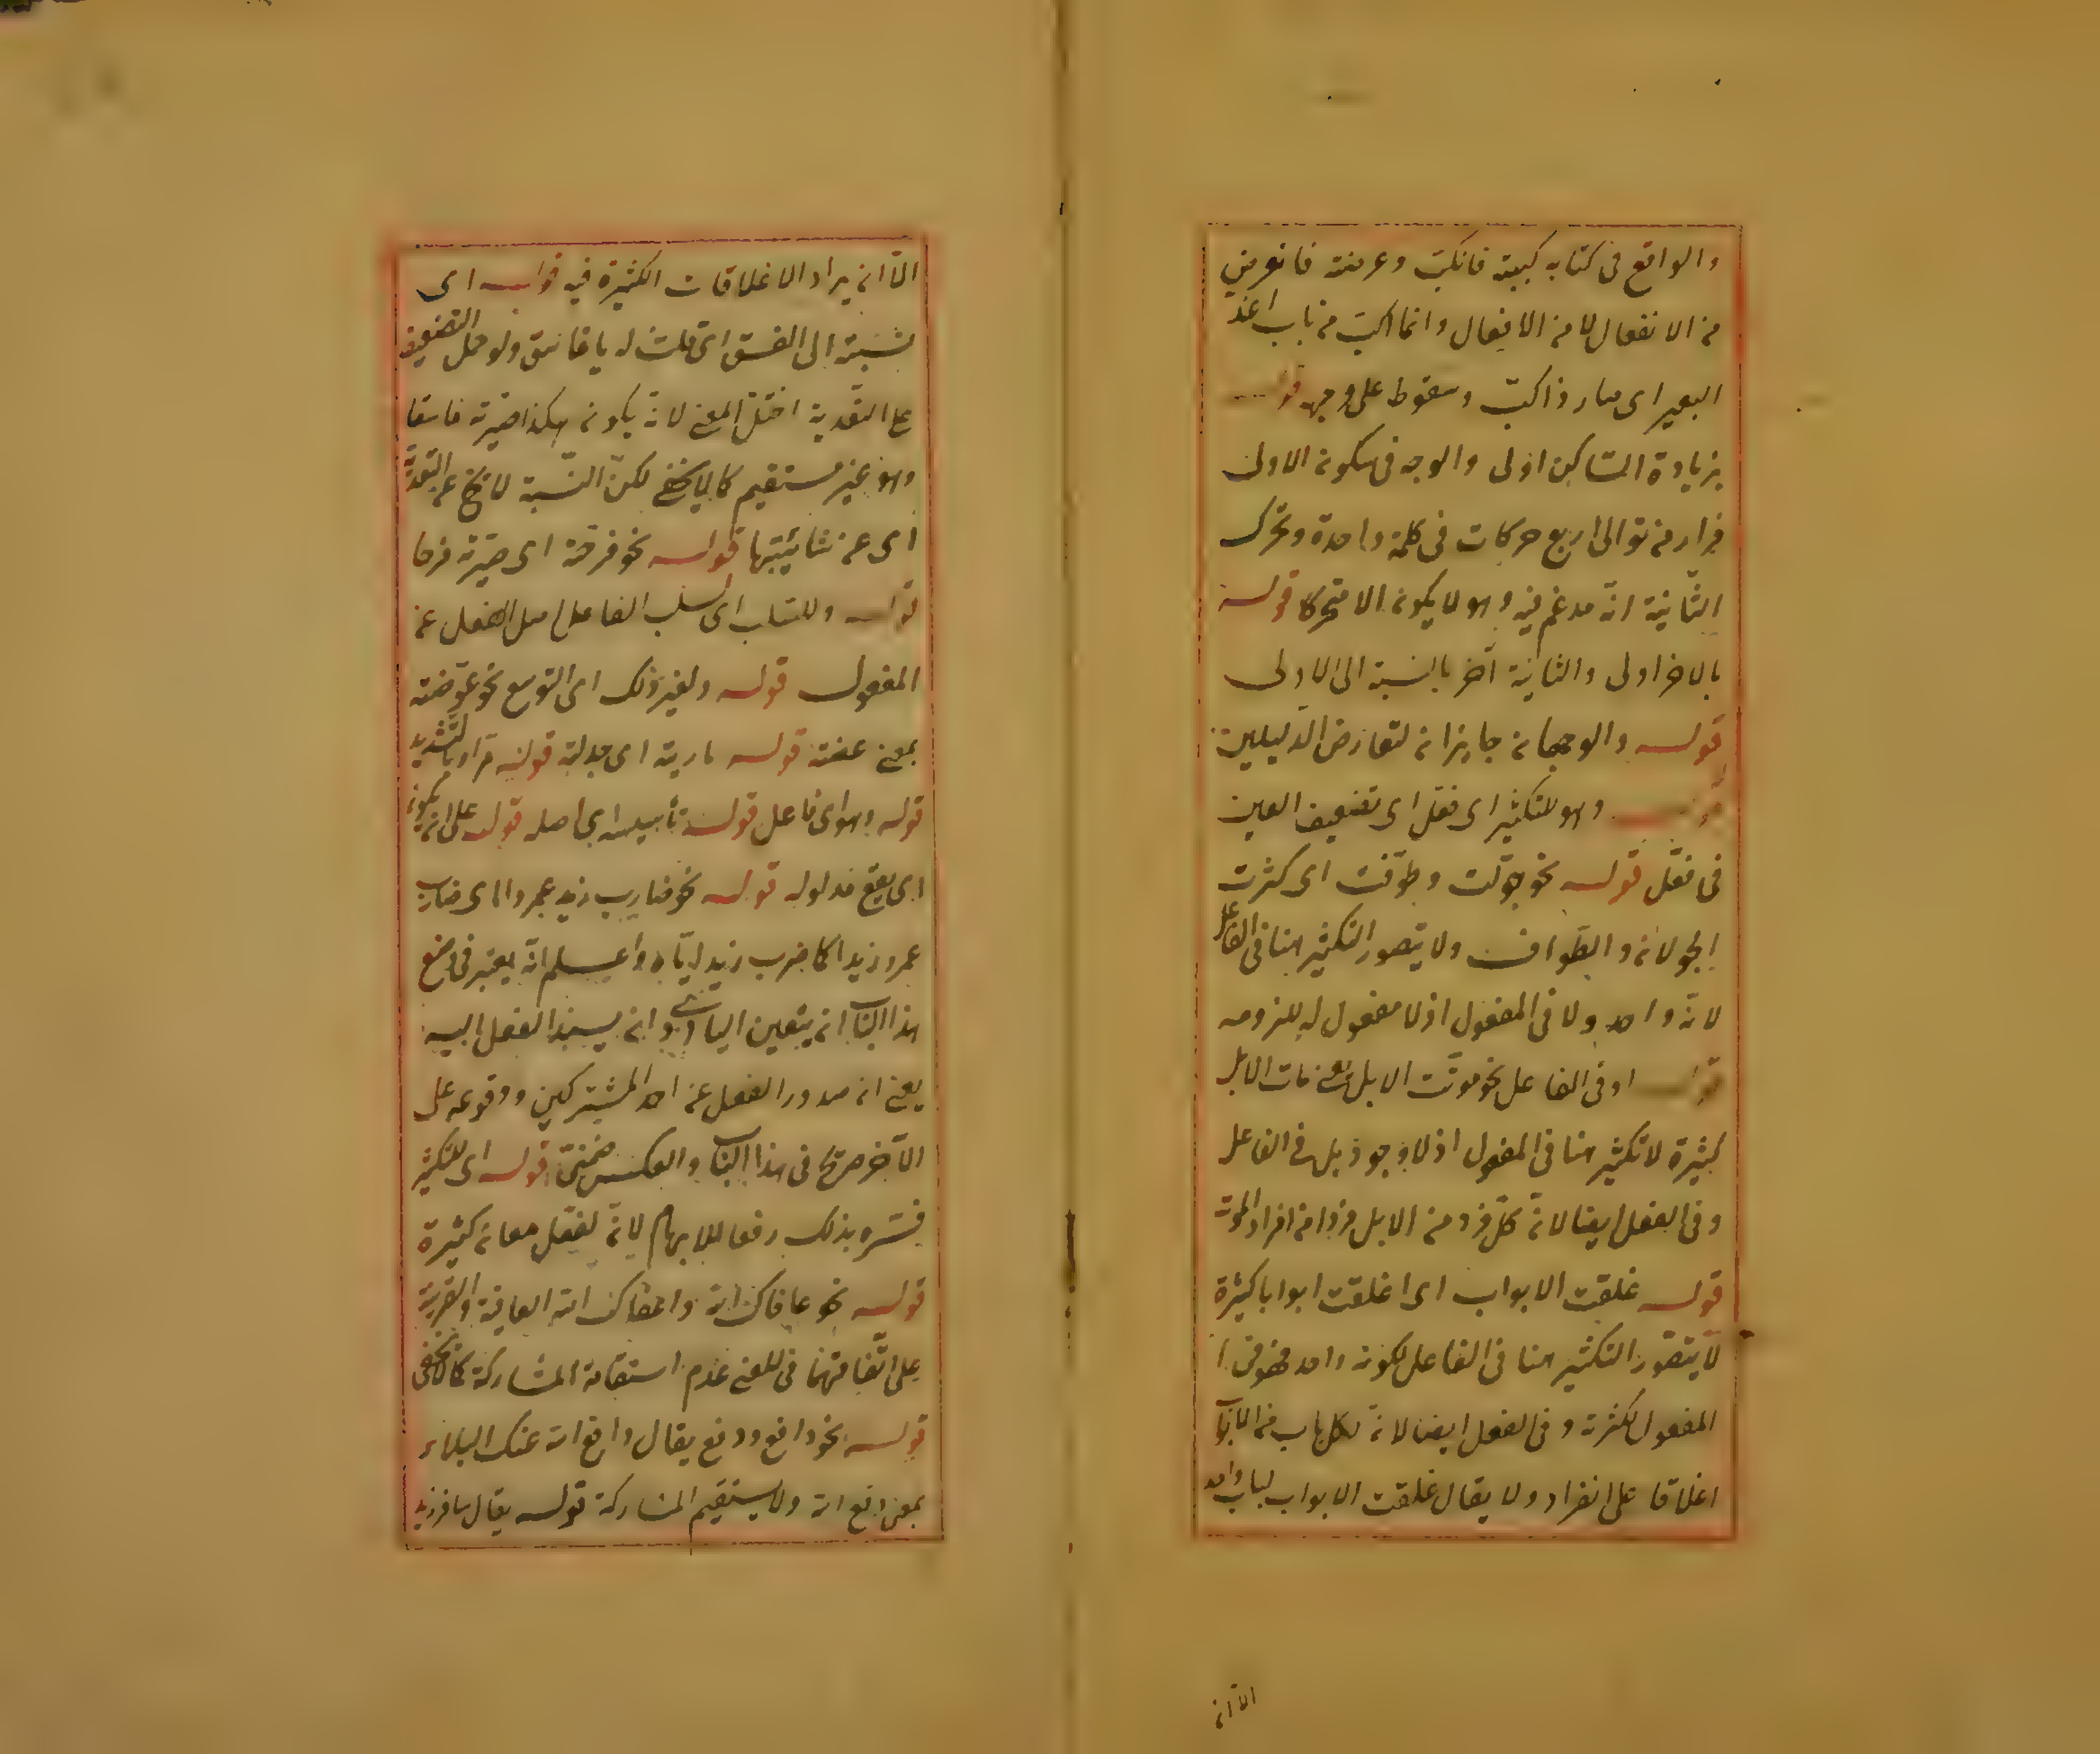 والواقع فى كتابه كببته فانكبّ وعرضته فانعرض
من الانفعال لا من الافعال وانما اكبّ من باب اغدّ
البعير اى صار ذا كبّ وسقوط على وجهه قوله
بزيادة الساكن اولى والوجه فى سكون الاولى
فرار من توالى اربع حركات فى كلمة واحدة وتحرك
الثانية انه مدغم فيه وهو لا يكون الا متحركا قوله
بالاخر اولى والثانية آخر بالنسبة الى الاولى
قوله والوجهان جايزان لتعارض الدليلين
قوله وهو للتكثير اى فعّل اى تضعيف العين
فى فعّل قوله نحو جوّلت وطوّفت اى كثرت
الجولان والطواف ولا يتصور التكثير هنا فى الفاعل
لانه واحد ولا فى المفعول اذ لا مفعول له للزومه
قوله او فى الفاعل نحو موّتت الابل يعنى مات الابل
كثيرة لا تكثير هنا فى المفعول اذ لا وجود بل فى الفاعل
وفى الفعل ايضا لانّ كلّ فرد من الابل فردا من افراد الموت
قوله غلقت الابواب اى اغلقت ابوابا كثيرة
لا يتصوّر التكثير هنا فى الفاعل لكونه واحد فهو فى
المفعول لكثرته وفى الفعل ايضا لانّ لكل باب من الابواب
اغلاقا على انفراد ولا يقال غلقت الابواب لباب واحد
الاّ ان
الاّ ان يراد الاغلاقات الكثيرة فيه قوله اى
نسبته الى الفسق اى قلت له يا فاسق ولو حمل التضعيف
على التعدية اختلّ المعنى لانه يكون هكذا صيّرته فاسقا
وهو غير مستقيم كما لا يخفى لكنّ النسبة لا تخ عن التعدية
اى عن شائبتها قوله نحو فرحته اى صيّرته فرحا
قوله وللسلب اى لسلب الفاعل اصل الفعل عن
المفعول قوله ولغير ذلك اى التوسع نحو عوّضته
بمعنى عضته قوله مارية اى جدلته قوله مرّاد بالتشديد
قوله وهو اى فاعل قوله تأسيسه اى اصله قوله على ان يكون
اى يقع مدلوله قوله نحو ضارب زيد عمروا اى ضارب
عمرو زيدا كما ضرب زيد اياه واعلم انه يعتبر فى وضع
هذا الباب ان يتعين البادى وان يسند الفعل اليه
يعنى ان صدور الفعل عن احد المشتركين ووقوعه على
الآخر صريح فى هذا الباب والعكس ضمنىّ قوله اى للتكثير
فسّره بذلك رفعا للابهام لانّ لفعّل معان كثيرة
قوله نحو عافاك الله واعفاك الله العافية والقرينة
على اتفاقهما فى المعنى عدم استقامة المشاركة كما لا يخفى
قوله نحو دافع ودفع يقال دافع الله عنك البلاء
بمعنى دفع الله ولا يستقيم المشاركة قوله يقال سافر زيد